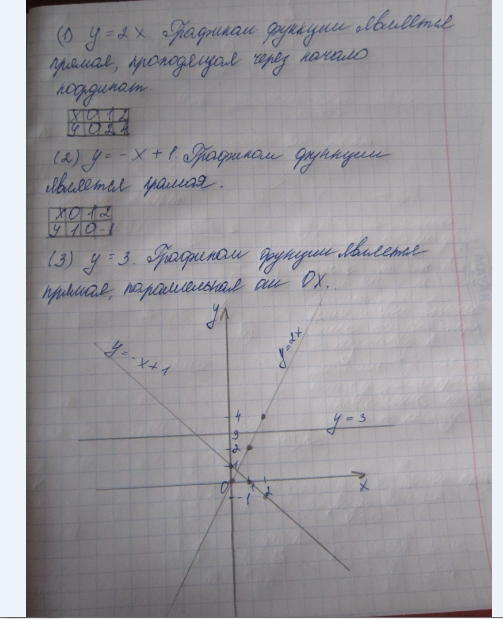 (1) y = 2x. Графиком функции является
прямая, проходящая через начало
координат.
x 0 1 2
y 0 2 4
(2) y = -x + 1. Графиком функции
является прямая.
x 0 1 2
y 1 0 -1
(3) y = 3. Графиком функции является
прямая, параллельная оси Ox.
y
y = -x + 1
y = 2x
4
y = 3
3
2
1
0
1
2
x
-1